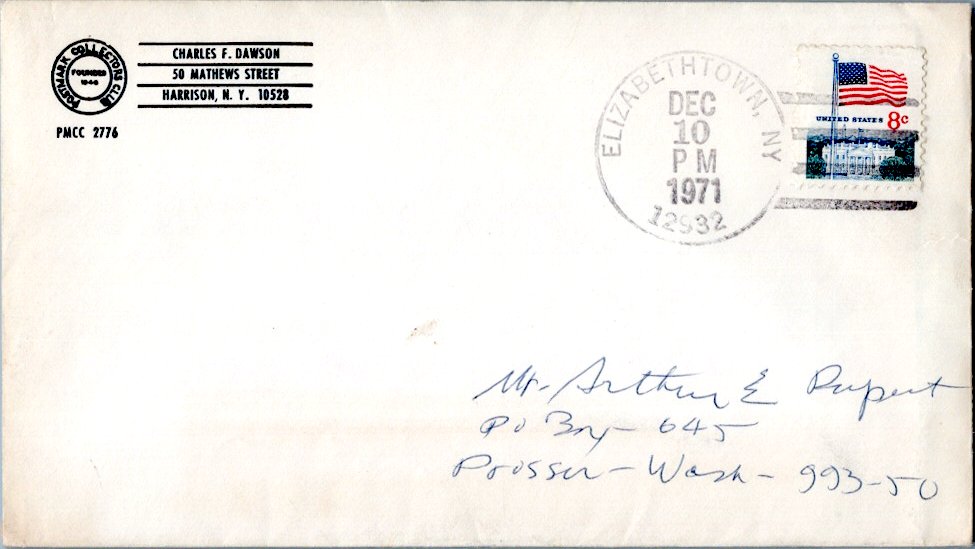 POSTMARK COLLECTORS CLUB
FOUNDED
1946
CHARLES F. DAWSON
50 MATHEWS STREET
HARRISON, N. Y. 10528
PMCC 2776
ELIZABETHTOWN, NY
DEC
10
PM
1971
12932
UNITED STATES 8c
Mr. Arthur E Rupert
PO Box 645
Prosser - Wash - 993-50